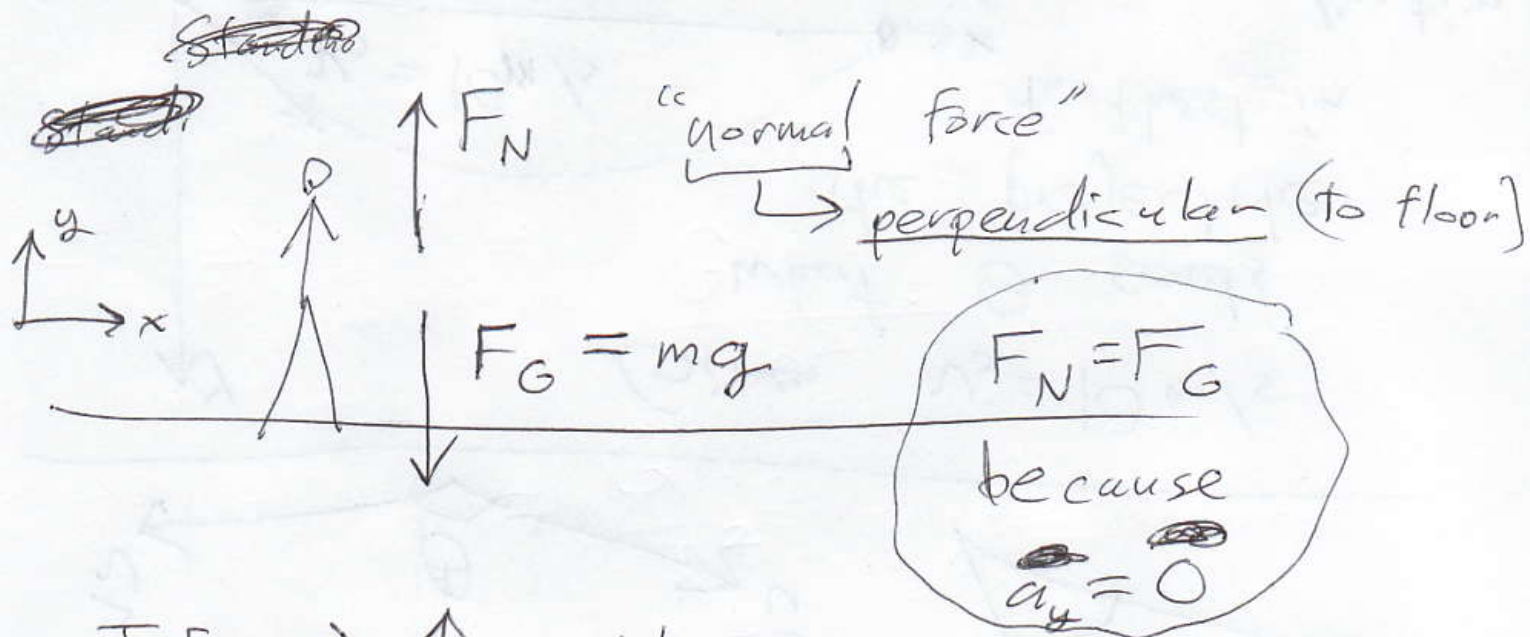 F_N "normal force"
y
perpendicular (to floor)
x
F_G = mg
F_N = F_G
because
a_y = 0